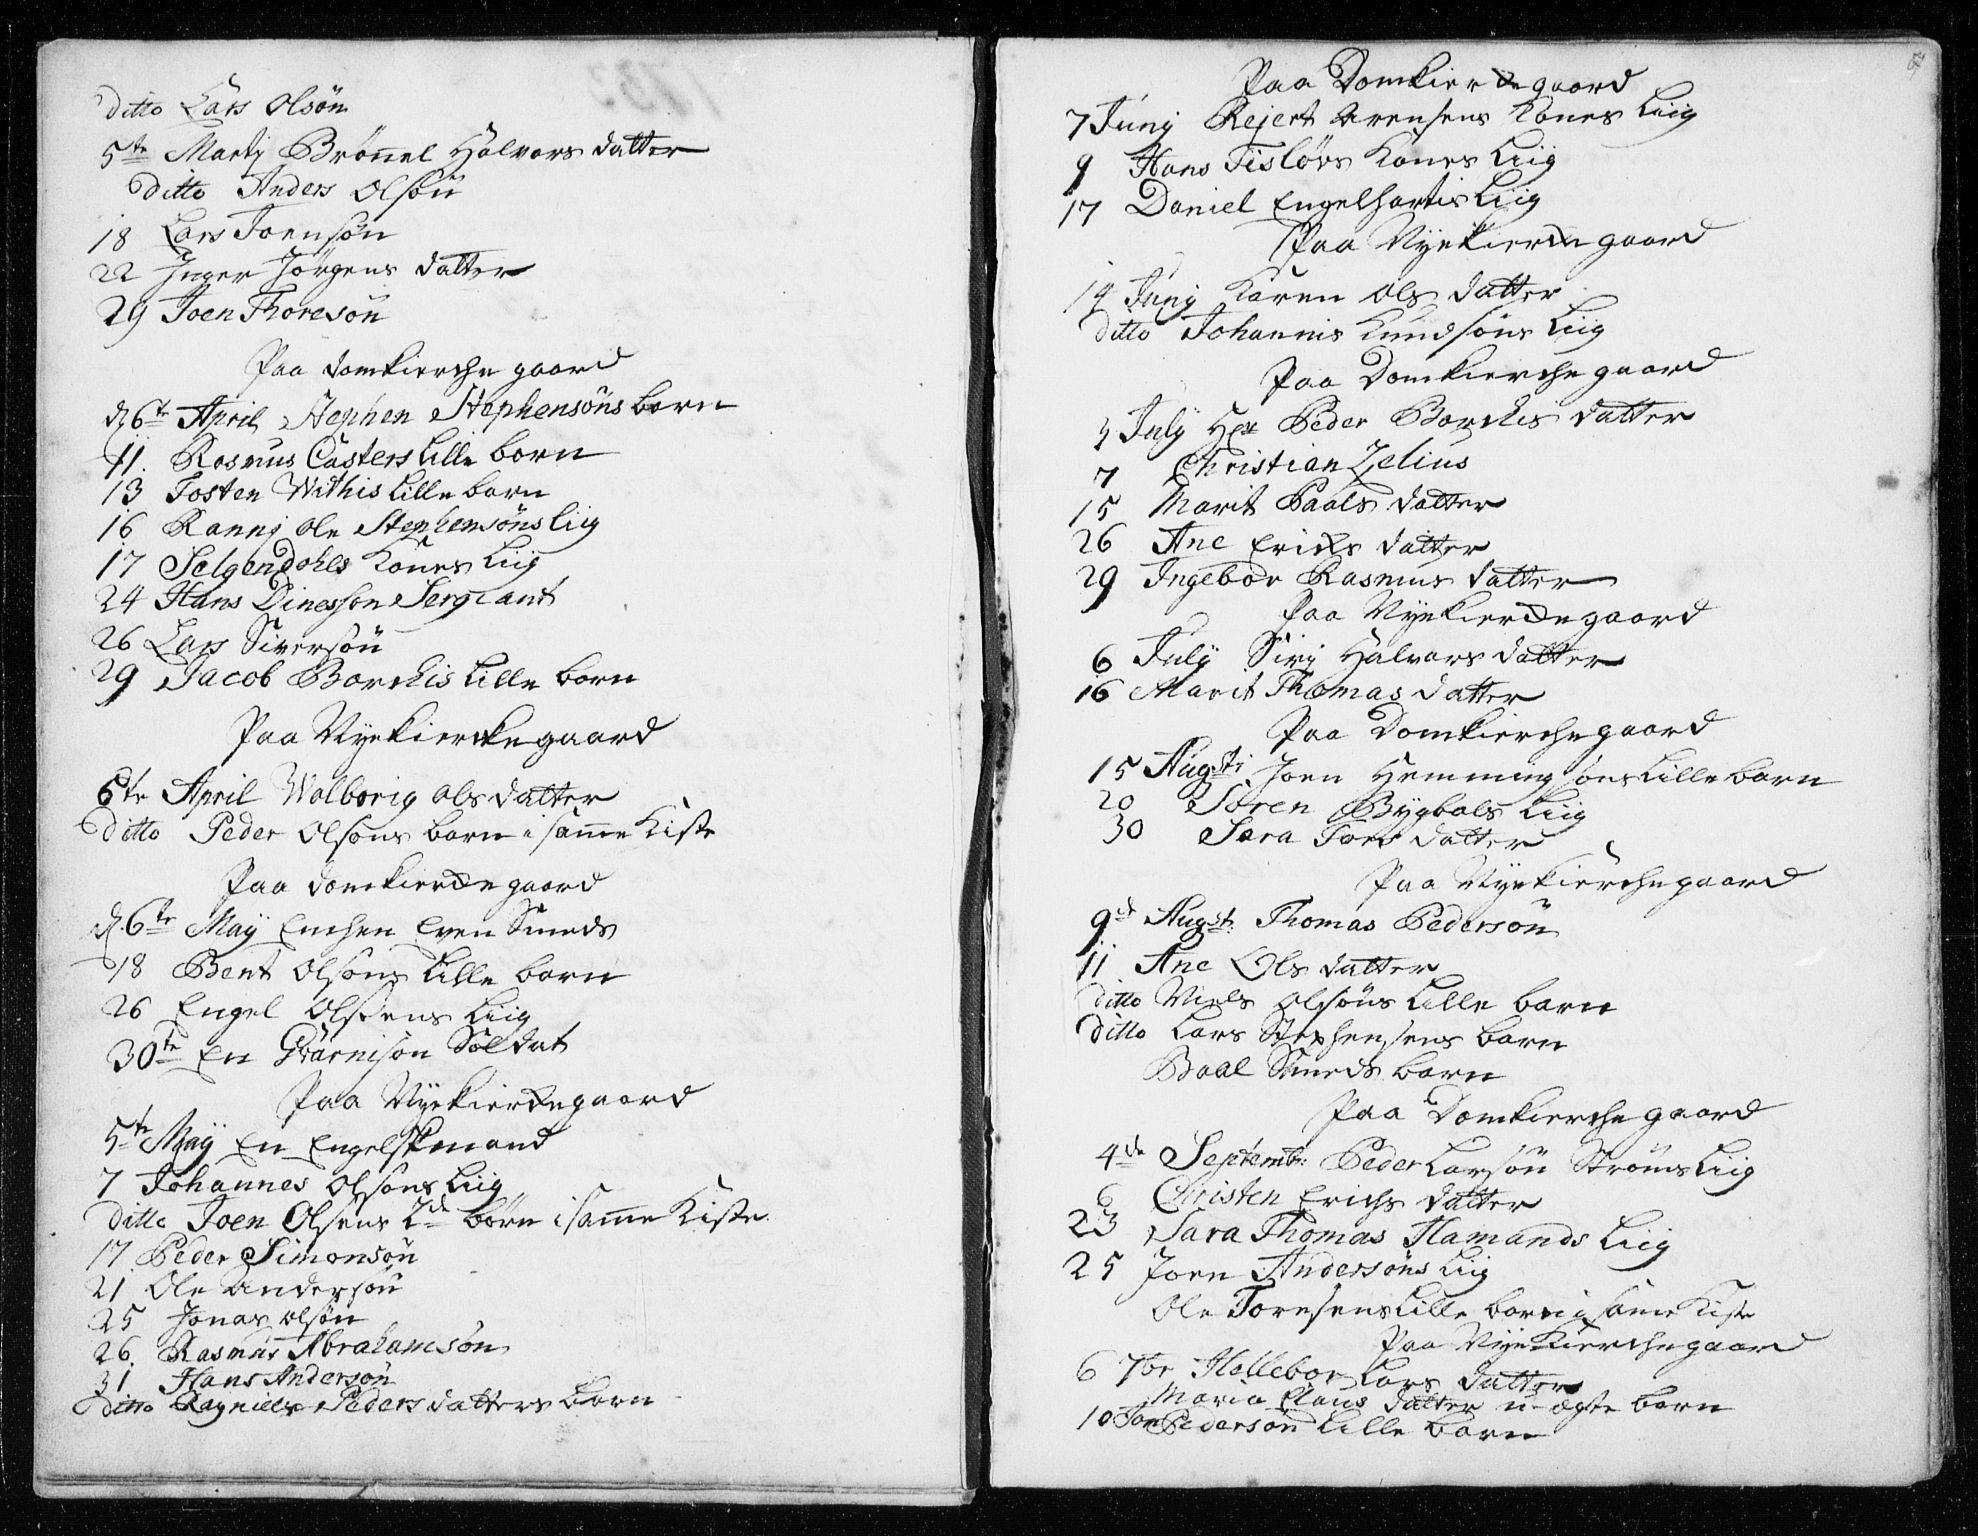 ditto Lars Olsøn
5te Martj Brønnel Halvors datter
ditto Anders Olsøn
18 Lars Joensøn
22 Inger Jørgens datter
29 Joen Thoresøn
Paa domkierche gaard
d 6te April Stephen Stephensøns barn
11. Rasmus Casters Lille barn
13 Tosten Withis Lille barn
16 Rannj Ole Stephensøns liig
17 Selgendahls Kones Liig
24 Hans Dinesson Sergiant
26 Lars Siversøn
29 Jacob Borchis Lille barn
Paa Nyekierckegaard
6te April Wolborig Olsdatter
ditto Peder Olsøns barn i samme Kiste
Paa domkierche gaard
d. 6te May Enchen Even Smeds
18 Bent Olsøns Lille barn
26 Engel Olsens Liig
30te En Guarnison Soldat
Paa Nyekierchegaard
5te May En Engelskmand
7 Johannes Olsøns Liig
ditto Joen Olsens 2de børn i samme Kiste
17 Peder Simonsøn
21 Ole Andersøn
25 Jonas Olsøn
26. Rasmus Abrahamsøn
31 Hans Andersøn
ditto Ragnille Peders datters barn
Paa Domkierche gaard
7 Junj Rejert Arensens Kones Liig
9 Hans Tisløvs Kones Liig
17 Daniel Engelhartis Liig
Paa Nyekierche gaard
14 Junj Karen Ols datter
ditto Johannis Knudsøns Liig
Paa Domkierche gaard
3 July Hr Peder Borchis datter
7 Christian Zelius
15 Marit Paals datter
26 Ane Erichs datter
29 Ingebor Rasmus datter
Paa Nyekierche gaard
6 July Sirj Halvors datter
16 Marit Thomas datter
Paa Domkierche gaard
15 Augsti Joen Hemmingsøns Lille barn
20 Soren Bygbals Liig
30 Sara Tores datter
Paa Nyekierche gaard
9de Augst: Thomas Pedersøn
11 Ane Ols datter
ditto Niels Olsøns Lille barn
ditto Lars Stephensens barn
Baal Smeds barn
Paa Domkierche gaard
4de Septembr: Peder Larsøn Strøms Liig
6 Christen Erichs datter
23 Sara Thomas Hamands Liig
25 Joen Andersøns Liig
Ole Toresens Lille barn i same Kiste
Paa Nyekierchegaard
6 7br Hollebor Lars datter
Maria Claus datter u-ægte barn
10 Jon Pedersøn Lille barn